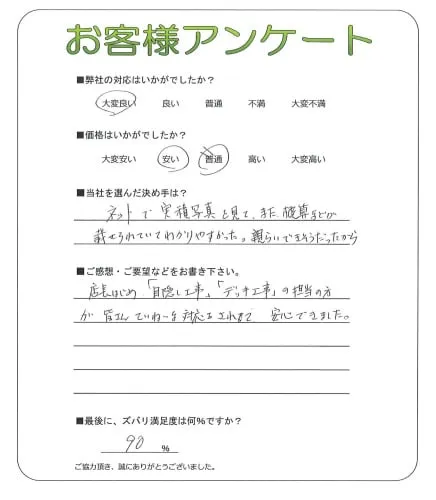 お客様アンケート
■弊社の対応はいかがでしたか?
大変良い 良い 普通 不満 大変不満
■価格はいかがでしたか?
大変安い 安い 普通 高い 大変高い
■当社を選んだ決め手は?
ネットで実積写真を見て、また、概算などが
載せられていてわかりやすかった。親らいできそうだったから
■ご感想・ご要望などをお書き下さい。
店長はじめ「目隠し工事」、「デッキ工事」の担当の方
が 皆さんていねいな対応をされて 安心できました。
■最後に、ズバリ満足度は何%ですか?
90 %
ご協力頂き、誠にありがとうございました。